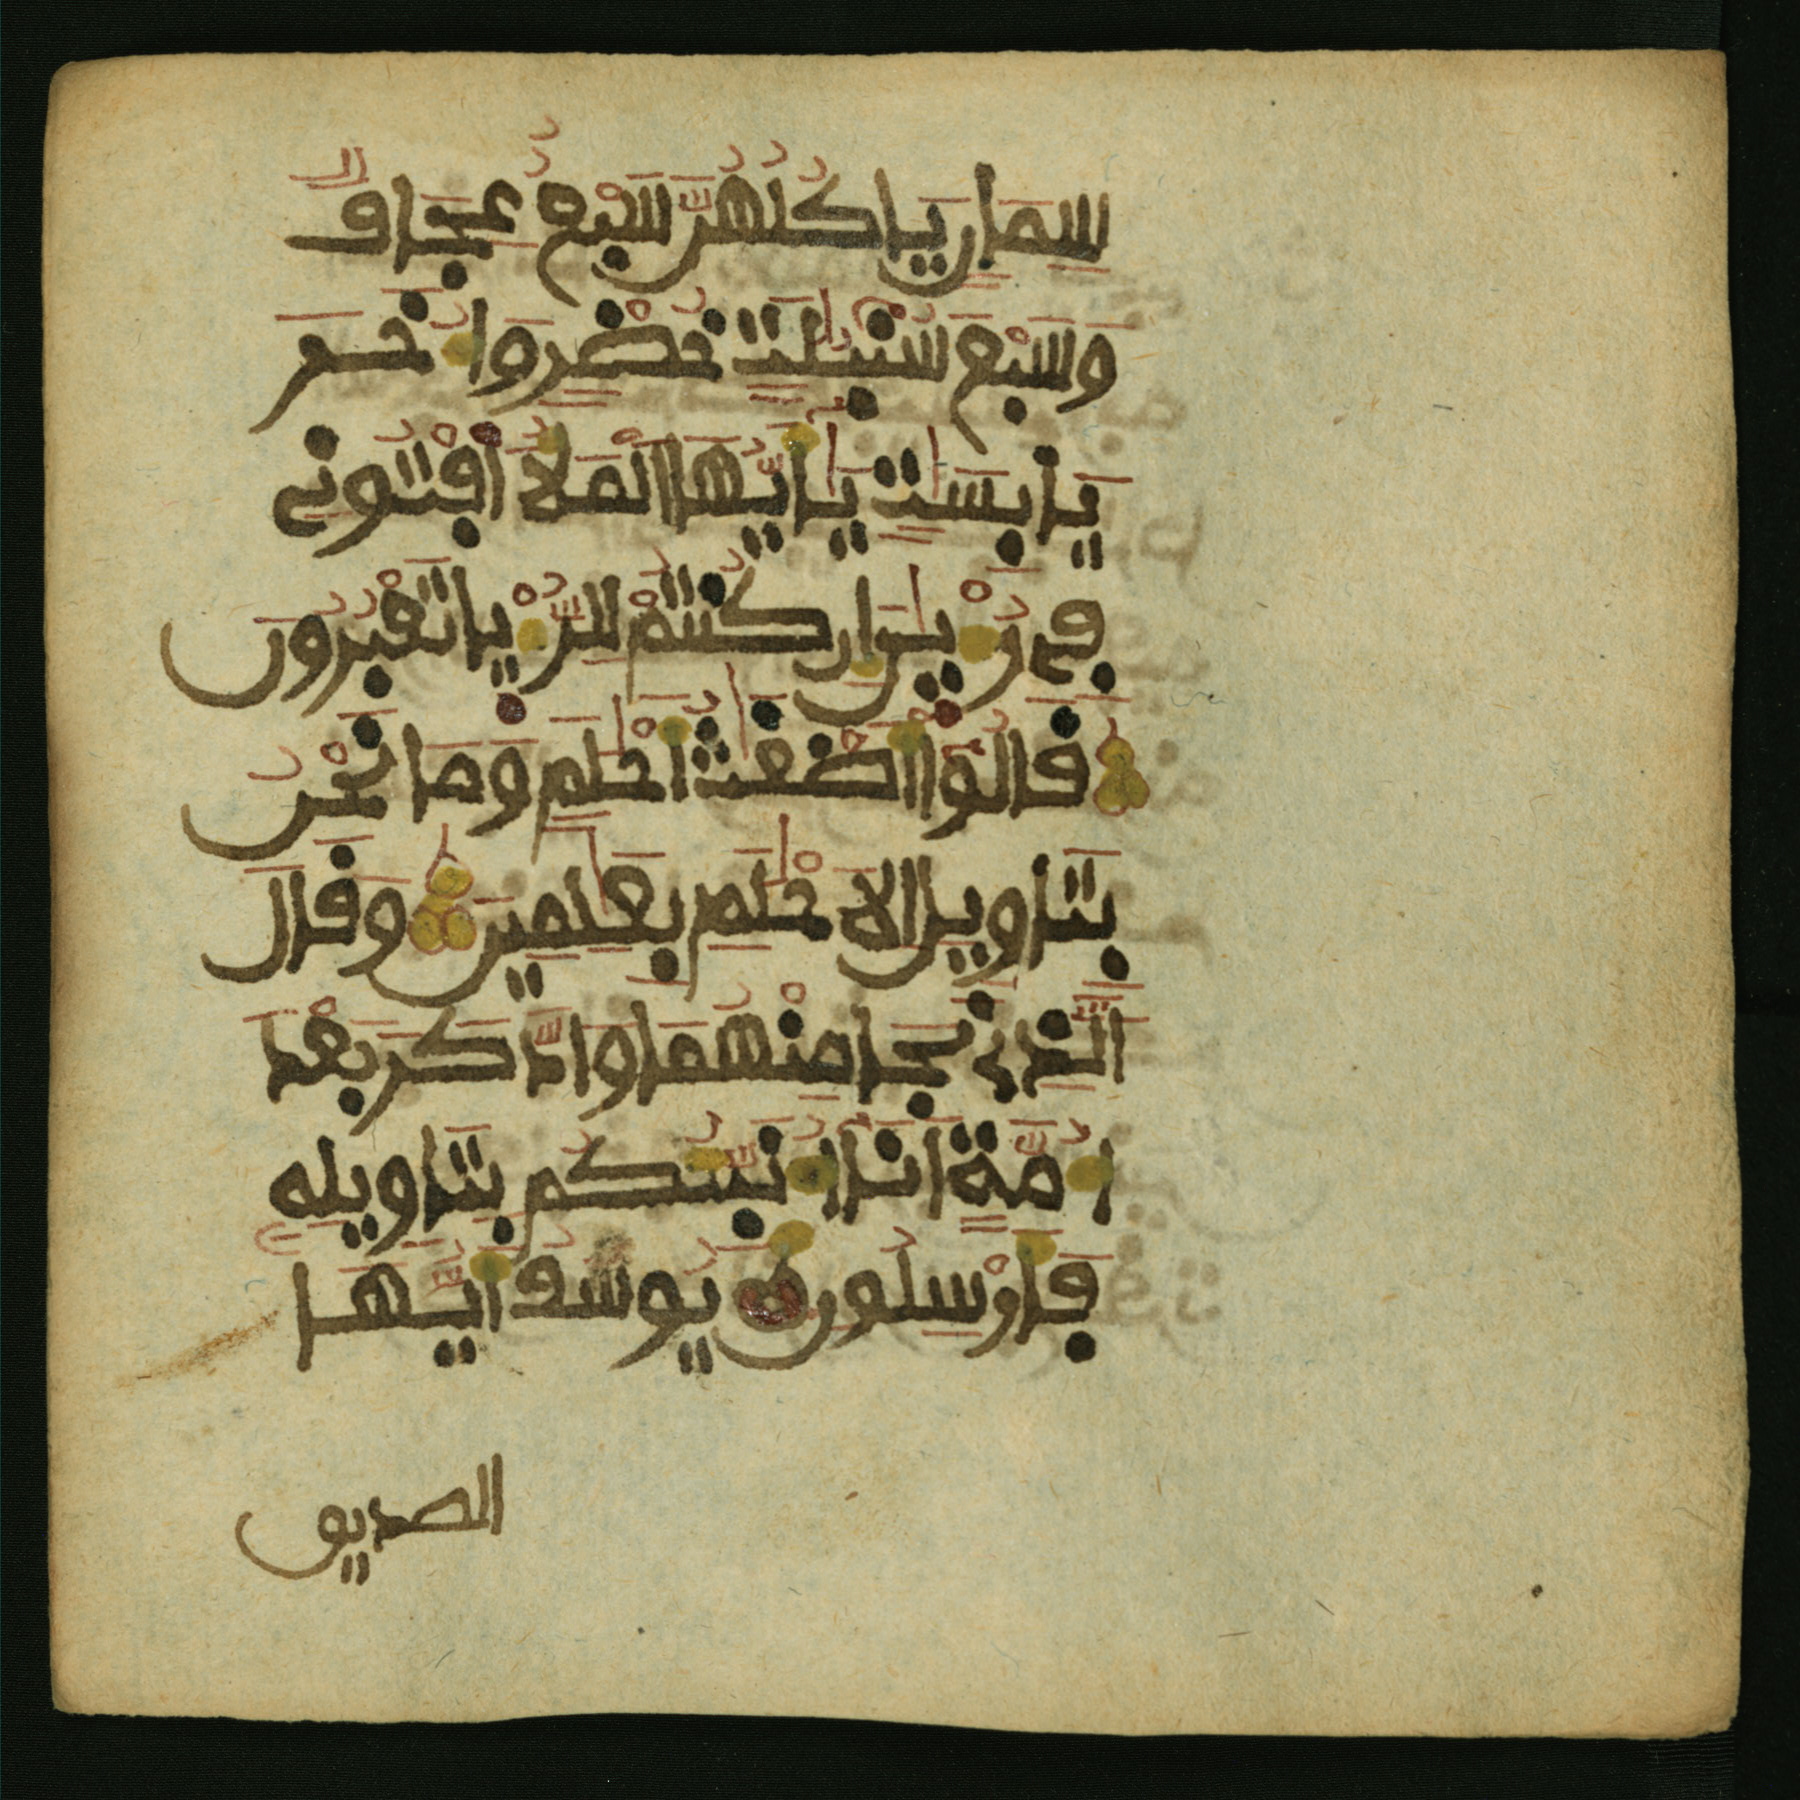 سِمَانٍ يَاكُلُهُنَّ سَبْعٌ عِجَافٌ
وَسَبْعَ سُنۢبُلَٰتٍ خُضْرٍ وَأُخَرَ
يَابِسَٰتٍ يَٰأَيُّهَا ٱلْمَلَأُ أَفْتُونِے
فِے رُءْيَٰيَ إِن كُنتُمْ لِلرُّءْيَا تَعْبُرُونَ
قَالُوٓا۟ أَضْغَٰثُ أَحْلَٰمٍ وَمَا نَحْنُ
بِتَاوِيلِ ٱلَاحْلَٰمِ بِعَٰلِمِينَ وَقَالَ
ٱلَّذِے نَجَا مِنْهُمَا وَٱدَّكَرَ بَعْدَ
أُمَّةٍ أَنَا أُنَبِّئُكُم بِتَاوِيلِهِ
فَأَرْسِلُونِ يُوسُفُ أَيُّهَا
الصديق